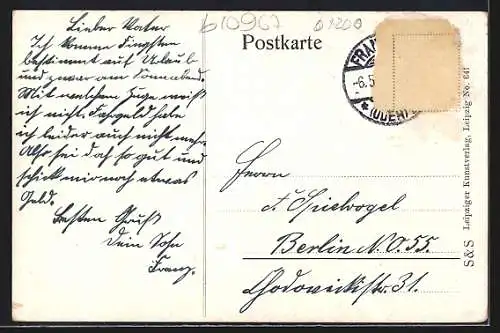 b10967
01200
Postkarte
Lieber Vater
Ich komme Pfingsten
bestimmt auf Urlaub
und zwar am Sonnabend.
Mit welchem Zuge weiß
ich nicht. Fahrgeld habe
ich leider auch nicht mehr.
Also sei doch so gut und
schick mir noch etwas
Geld.
Besten Gruß
Dein Sohn
Franz.
FRAN
-6.5
(ODER)
Herrn
F. Spielvogel
Berlin N.O. 55.
Chodowieckistr. 31.
S & S Leipziger Kunstverlag, Leipzig No. 641